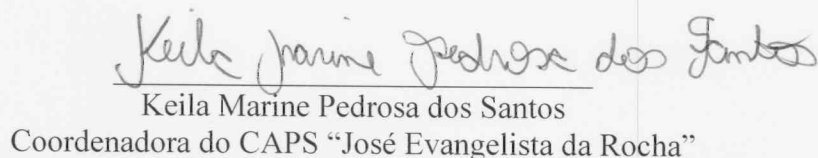 Keila Marine Pedrosa dos Santos
Keila Marine Pedrosa dos Santos
Coordenadora do CAPS “José Evangelista da Rocha”